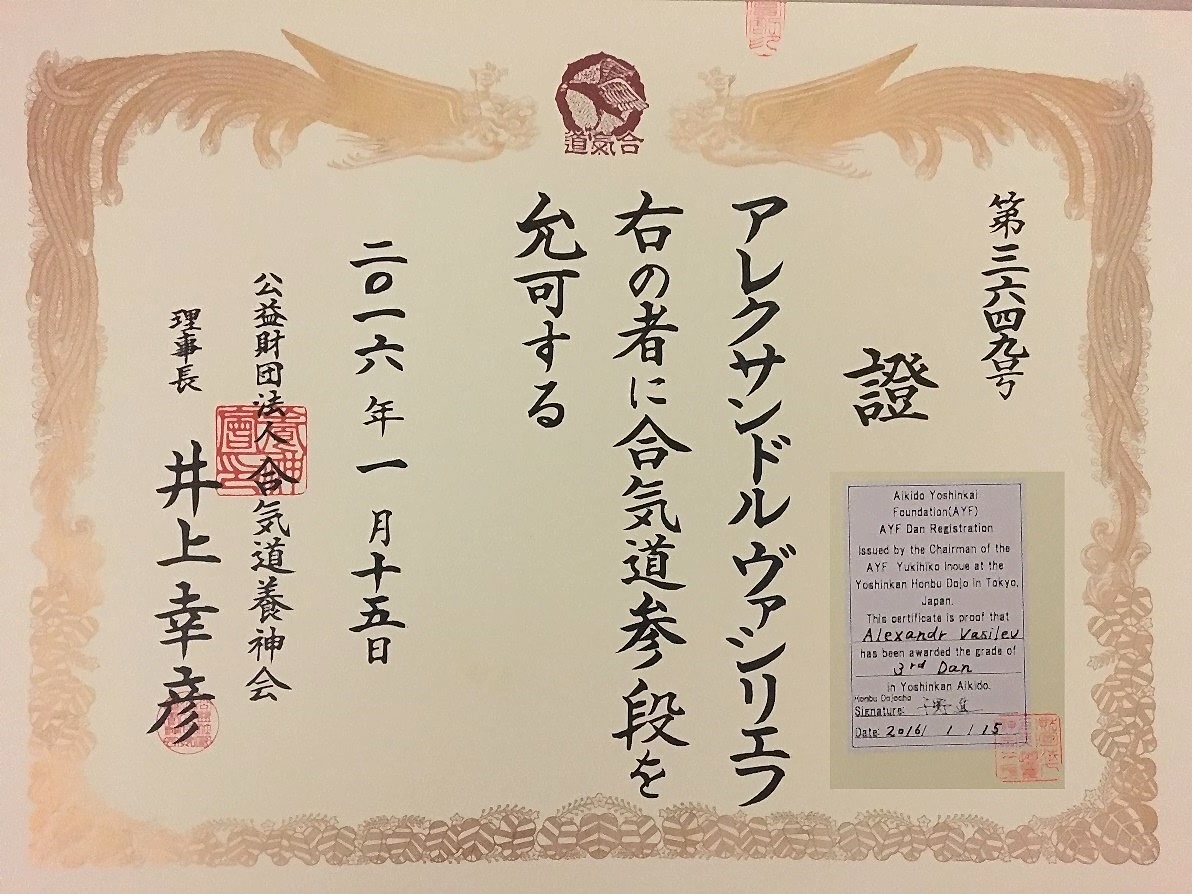 道氣合
第三六四九号
證
アレクサンドル ヴァシリエフ
右の者に合気道参段を
允可する
二〇一六年一月十五日
公益財団法人合気道養神会
理事長 井上幸彦
Aikido Yoshinkai
Foundation(AYF)
AYF Dan Registration
Issued by the Chairman of the
AYF Yukihiko Inoue at the
Yoshinkan Honbu Dojo in Tokyo,
Japan.
This certificate is proof that
Alexandr Vasilev
has been awarded the grade of
3rd Dan
in Yoshinkan Aikido.
Honbu Dojocho
Signature:
Date: 2016/ 1 / 15